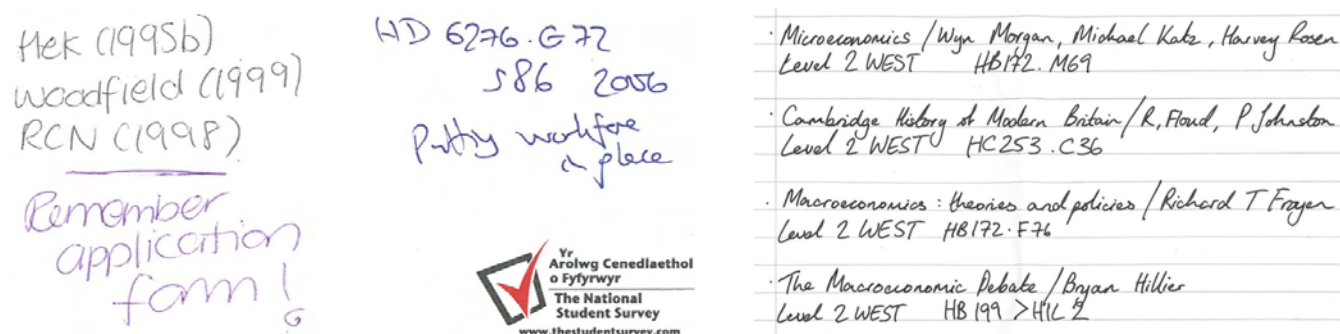 Hek (1995b)
Woodfield (1999)
RCN (1998)
Remember
application
form!
HD 6276.G72
S86 2006
Putting workfare
in place
Yr
Arolwg Cenedlaethol
o Fyfyrwyr
The National
Student Survey
www.thestudentsurvey.com
· Microeconomics / Wyn Morgan, Michael Katz, Harvey Rosen
Level 2 WEST HB172.M69
· Cambridge History of Modern Britain / R, Floud, P Johnston
Level 2 WEST HC253.C36
· Macroeconomics : theories and policies / Richard T Froyen
Level 2 WEST HB172.F76
· The Macroeconomic Debate / Bryan Hillier
Level 2 WEST HB199 >HIL 2